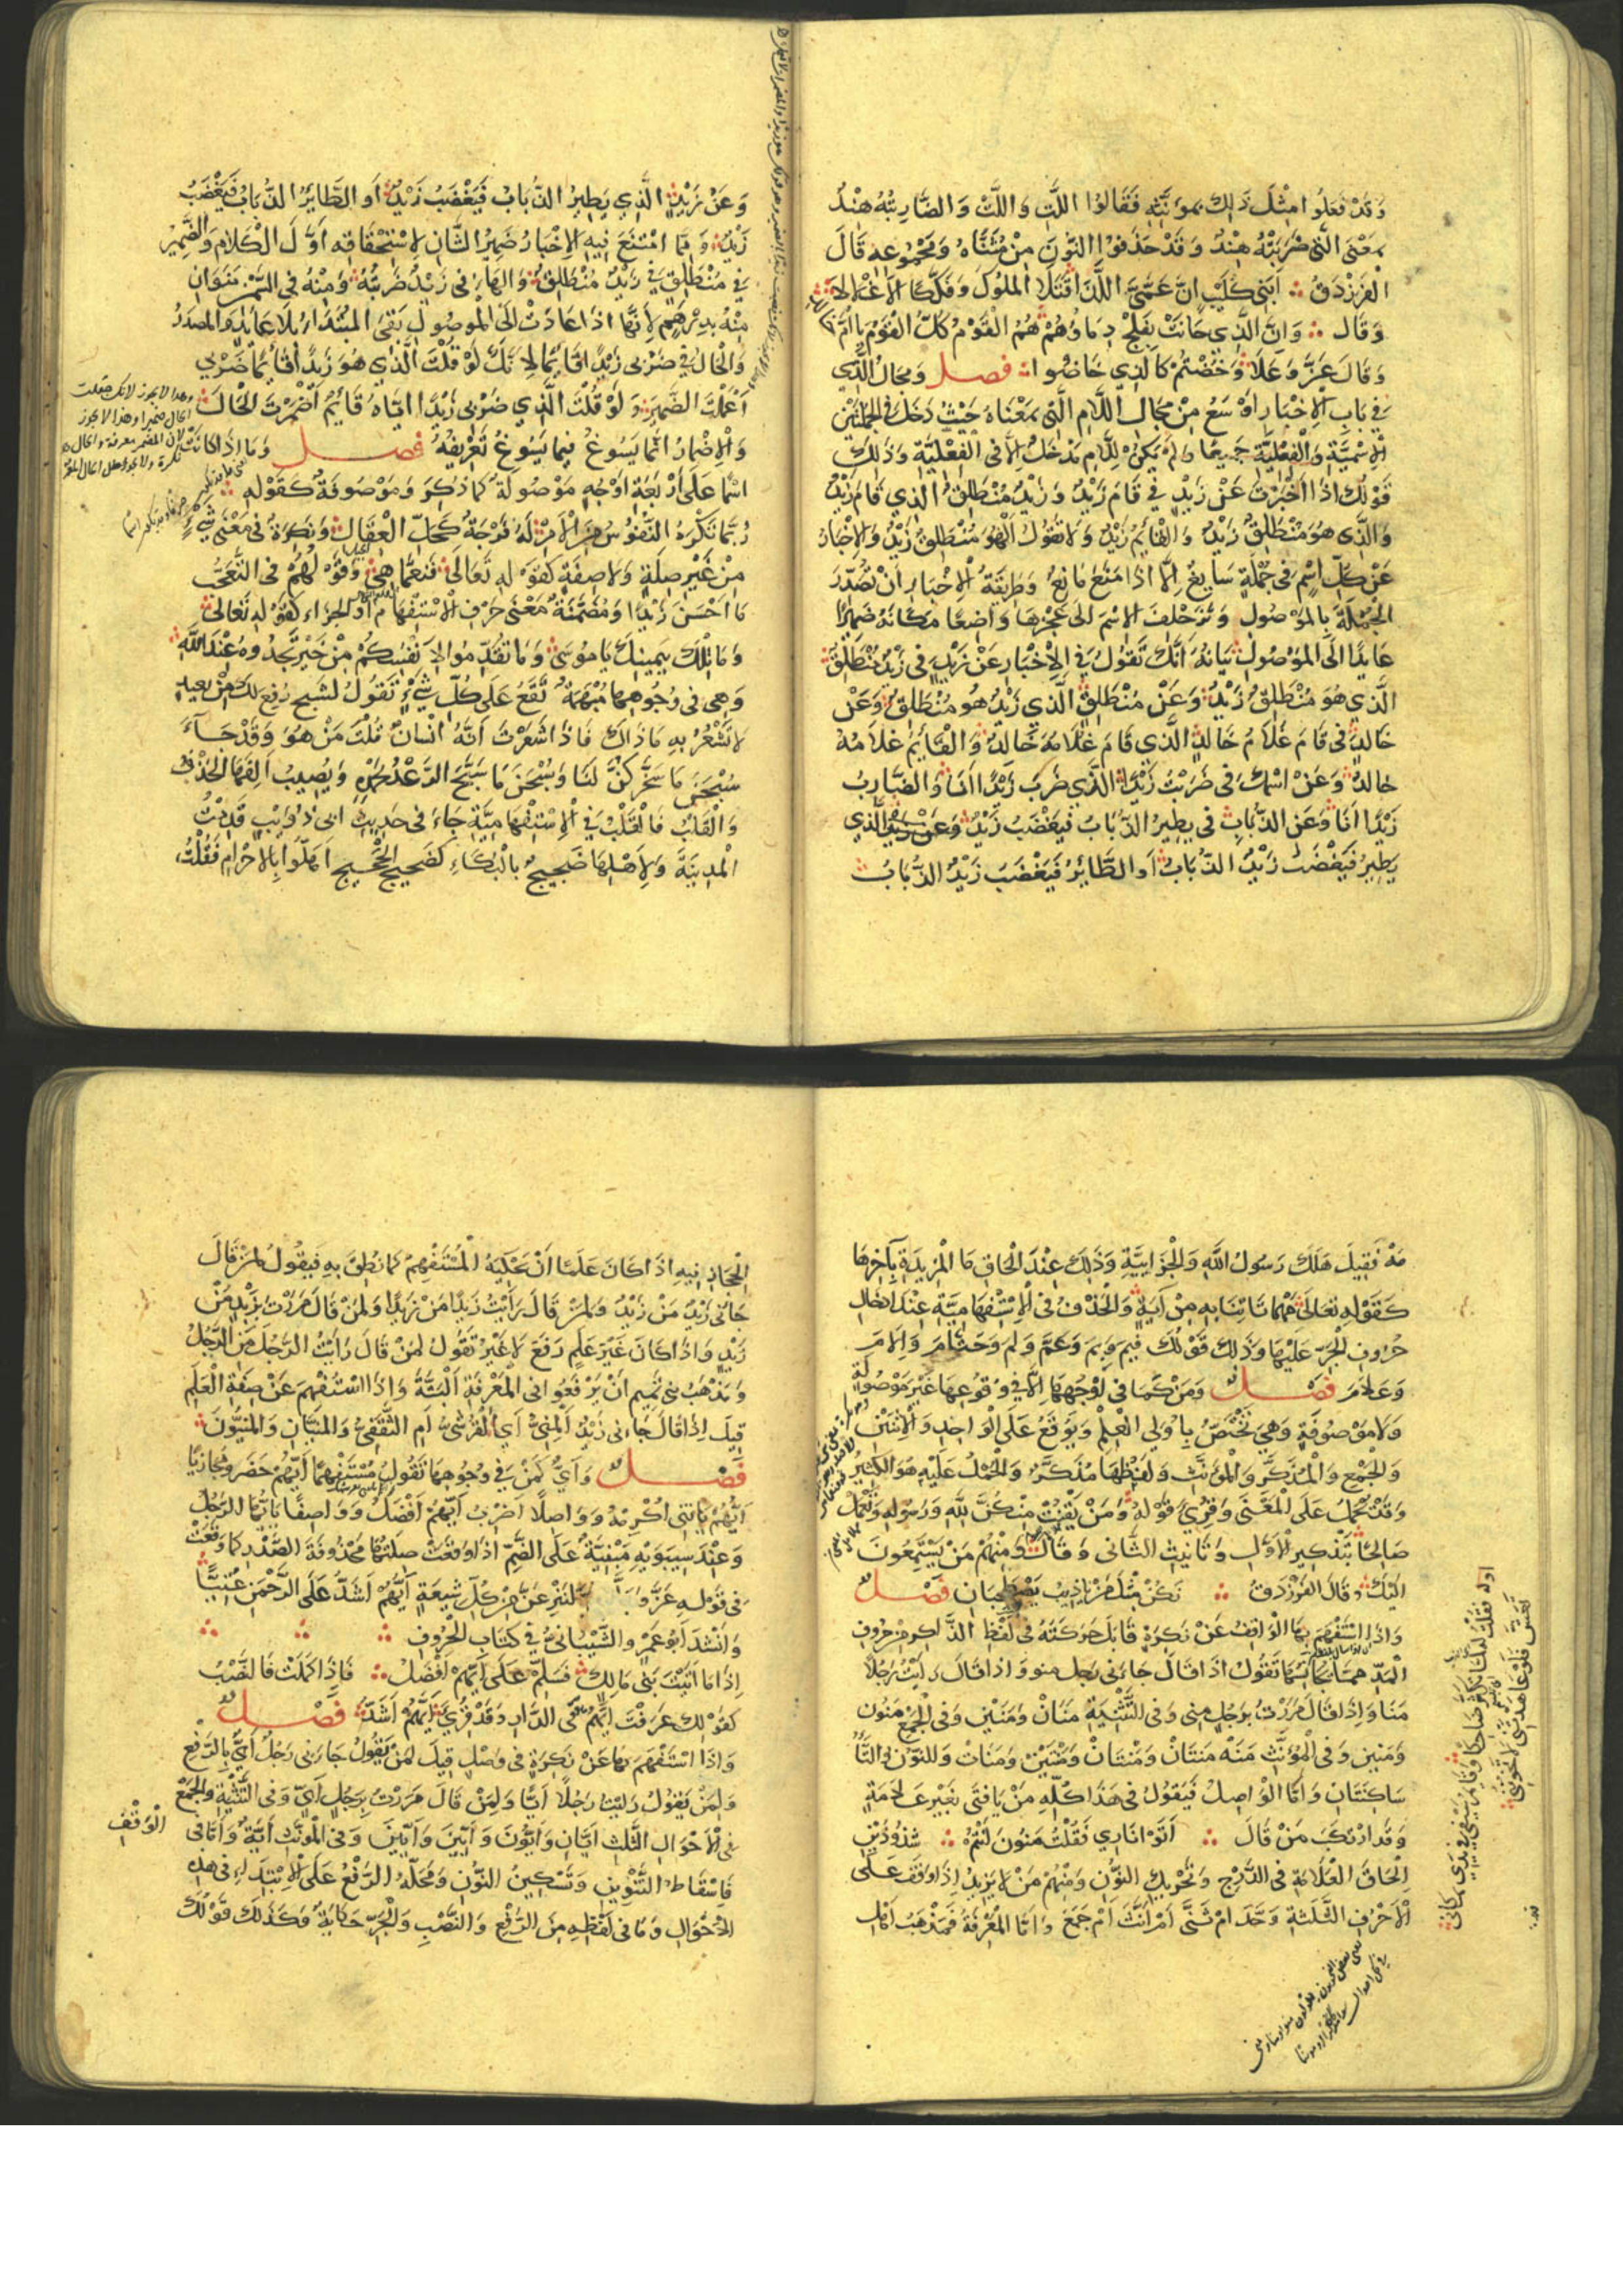 وَقَدْ فَعَلُوا مِثْلَ ذَلِكَ بمؤنَّثِهِ فَقَالُوا اللَّتِ وَاللَّتْ وَالضَّارِبَتُهُ هِنْدُ
بمَعْنَى الَّتِي ضَرَبَتْهُ هِنْدُ وَقَدْ حَذَفُوا النُّونَ مِنْ مُثَنَّاهُ وَمَجْمُوعِهِ قَالَ
الفَرَزْدَقُ أَبَنِي كُلَيْبٍ اِنَّ عَمَّيَّ اللَّذَا قَتَلَا الْمُلُوكَ وَفَكَّكَا الأَغْلَالَا
وَقَالَ وَانَّ الَّذِي حَانَتْ بِفَلْجٍ دِمَاؤُهُمْ هُمُ الْقَوْمُ كُلُّ الْقَوْمِ يَا أُمَّ خَالِدِ
وَقَالَ عَزَّ وَعَلَا وَخُضْتُمْ كَالَّذِي خَاضُوا فصل وَمَجَالُ الَّذِي
فِي بَابِ الإِخْبَارِ أَوْسَعُ مِنْ مَجَالِ اللَّامِ الَّتِي بمَعْنَاهُ حَيْثُ دَخَلَ فِي الجُمْلَتَيْنِ
الِاسْمِيَّةِ وَالْفِعْلِيَّةِ جَمِيعًا وَلَمْ يَكُنْ لِلَّامِ مَدْخَلٌ إِلَّا فِي الْفِعْلِيَّةِ وَذَلِكَ
قَوْلُكَ اذَا أَخْبَرْتَ عَنْ زَيْدٍ فِي قَامَ زَيْدٌ وَزَيْدٌ مُنْطَلِقٌ الَّذِي قَامَ زَيْدٌ
وَالَّذِي هُوَ مُنْطَلِقٌ زَيْدٌ وَالْقَائِمُ زَيْدٌ وَلَا تَقُولُ الْهُوَ مُنْطَلِقٌ زَيْدٌ وَالإِخْبَارُ
عَنْ كُلِّ اسْمٍ فِي جُمْلَةٍ سَايِغٌ إِلَّا اذَا مَنَعَ مَانِعٌ وَطَرِيقَةُ الإِخْبَارِ أَنْ تُصَدِّرَ
الجُمْلَةَ بِالمَوْصُولِ وَتُزَحْلِفَ الِاسْمَ الَى عَجُزِهَا وَاضِعًا مَكَانَهُ ضَمِيرًا
عَايِدًا الَى المَوْصُولِ بَيَانُهُ أَنَّكَ تَقُولُ فِي الإِخْبَارِ عَنْ زَيْدٍ فِي زَيْدٌ مُنْطَلِقٌ
الَّذِي هُوَ مُنْطَلِقٌ زَيْدٌ وَعَنْ مُنْطَلِقٌ الَّذِي زَيْدٌ هُوَ مُنْطَلِقٌ وَعَنْ
خَالِدٍ فِي قَامَ غُلَامُ خَالِدٍ الَّذِي قَامَ غُلَامُهُ خَالِدٌ وَالْقَائِمُ غُلَامُهُ
خَالِدٌ وَعَنْ اسْمِكَ فِي ضَرَبْتُ زَيْدًا الَّذِي ضَرَبَ زَيْدًا انَا وَالضَّارِبُ
زَيْدًا انَا وَعَنِ الذُّبَابِ فِي يَطِيرُ الذُّبَابُ فَيَغْضَبُ زَيْدٌ الَّذِي
يَطِيرُ فَيَغْضَبُ زَيْدٌ الذُّبَابُ أَوِ الطَّائِرُ فَيَغْضَبُ زَيْدٌ الذُّبَابُ
وَعَنْ زَيْدٍ الَّذِي يَطِيرُ الذُّبَابُ فَيَغْضَبُ زَيْدٌ أَوِ الطَّايِرُ الذُّبَابُ فَيَغْضَبُ
زَيْدٌ وَمِمَّا امْتَنَعَ فِيهِ الإِخْبَارُ ضَمِيرُ الشَّانِ لِاسْتِحْقَاقِهِ أَوَّلَ الْكَلَامِ وَالضَّمِيرُ
فِي مُنْطَلِقٌ فِي زَيْدٌ مُنْطَلِقٌ وَالهَاءُ فِي زَيْدٌ ضَرَبْتُهُ وَمِنْهُ فِي السَّمْنُ مَنَوَانِ
مِنْهُ بِدِرْهَمٍ لِأَنَّهَا اذَا عَادَتْ الَى المَوْصُولِ بَقِيَ المُبْتَدَاءُ بِلَا عَائِدٍ وَالمَصْدَرُ
وَالْحَالُ فِي ضَرْبِي زَيْدًا قَائِمًا لِأَنَّكَ لَوْ قُلْتَ الَّذِي هُوَ زَيْدًا قَائِمًا ضَرْبِي
أَعْمَلْتَ الضَّمِيرَ وَلَوْ قُلْتَ الَّذِي ضَرْبِي زَيْدًا ايَّاهُ قَائِمٌ أَضْمَرْتَ الْحَالَ
وَالإِضْمَارُ انَّمَا يَسُوغُ فِيمَا يَسُوغُ تَعْرِيفُهُ فصل وَمَا اذَا كَانَتْ
اسْمًا عَلَى أَرْبَعَةِ أَوْجُهٍ مَوْصُولَةٌ كَمَا ذُكِرَ وَمَوْصُوفَةٌ كَقَوْلِهِ
رُبَّمَا تَكْرَهُ النُّفُوسُ مِنَ الأَمْرِ لَهُ فَرْجَةٌ كَحَلِّ الْعِقَالِ وَنَكِرَةٌ فِي مَعْنَى شَيْءٍ
مِنْ غَيْرِ صِلَةٍ وَلَا صِفَةٍ كَقَوْلِهِ تَعَالَى فَنِعِمَّا هِيَ وَقَوْلُهُمْ فِي التَّعَجُّبِ
مَا أَحْسَنَ زَيْدًا وَمُضَمَّنَةٌ مَعْنَى حَرْفِ الِاسْتِفْهَامِ أَوِ الجَزَاءِ كَقَوْلِهِ تَعَالَى
وَمَا تِلْكَ بِيَمِينِكَ يَا مُوسَى وَمَا تُقَدِّمُوا لِأَنْفُسِكُمْ مِنْ خَيْرٍ تَجِدُوهُ عِنْدَ اللَّهِ
وَهِيَ فِي وُجُوهِهَا مُبْهَمَةٌ تَقَعُ عَلَى كُلِّ شَيْءٍ تَقُولُ لِشَبَحٍ رُفِعَ لَكَ مِنْ بَعِيدٍ
لَا تَشْعُرُ بِهِ مَا ذَاكَ فَاذَا شَعَرْتَ أَنَّهُ انْسَانٌ قُلْتَ مَنْ هُوَ وَقَدْ جَآءَ
سُبْحَنَ مَا سَخَّرَكُنَّ لَنَا وَسُبْحَنَ مَا سَبَّحَ الرَّعْدُ بِحَمْدِهِ وَيُصِيبُ أَلِفَهَا الحَذْفُ
وَالْقَلْبُ فَالْقَلْبُ فِي الِاسْتِفْهَامِيَّةِ جَاءَ فِي حَدِيثِ ابِي ذُؤَيْبٍ قَدِمْتُ
المَدِينَةَ وَلِأَهْلِهَا ضَجِيجٌ بِالْبُكَاءِ كَضَجِيجِ الْحَجِيجِ اهَلُّوا بِالإِحْرَامِ فَقُلْتُ
مَهْ فَقِيلَ هَلَكَ رَسُولُ اللَّهِ وَالْجَزَائِيَّةِ وَذَلِكَ عِنْدَ الْحَاقِ مَا الْمَزِيدَةِ بِآخِرِهَا
كَقَوْلِهِ تَعَالَى مَهْمَا تَاتِنَا بِهِ مِنْ آيَةٍ وَالْحَذْفُ فِي الِاسْتِفْهَامِيَّةِ عِنْدَ ادْخَالِ
حُرُوفِ الْجَرِّ عَلَيْهَا وَذَلِكَ قَوْلُكَ فِيمَ وَبِمَ وَعَمَّ وَلِمَ وَحَتَّامَ وَإِلَامَ
وَعَلَامَ فصل وَمَنْ كَمَا فِي أَوْجُهِهَا إِلَّا فِي وُقُوعِهَا غَيْرَ مَوْصُولَةٍ
وَلَا مَوْصُوفَةٍ وَهِيَ تَخْتَصُّ بِاولِي الْعِلْمِ وَتُوقَعُ عَلَى الْوَاحِدِ وَالِاثْنَيْنِ
وَالْجَمْعِ وَالْمُذَكَّرِ وَالْمُؤَنَّثِ وَلَفْظُهَا مُذَكَّرٌ وَالْحَمْلُ عَلَيْهِ هُوَ الْكَثِيرُ
وَقَدْ تُحْمَلُ عَلَى الْمَعْنَى وَقُرِئَ قَوْلُهُ وَمَنْ يَقْنُتْ مِنْكُنَّ لِلَّهِ وَرَسُولِهِ وَتَعْمَلْ
صَالِحًا بِتَذْكِيرِ الأَوَّلِ وَتَانِيثِ الثَّانِي وَقَالَ وَمِنْهُمْ مَنْ يَسْتَمِعُونَ
الَيْكَ وَقَالَ الفَرَزْدَقُ نَكُنْ مِثْلَ مَنْ يَاذِيبُ يَصْطَحِبَانِ فصل
وَاذَا اسْتَفْهَمَ بِهَا الْوَاقِفُ عَنْ نَكِرَةٍ قَابَلَ حَرَكَتَهُ فِي لَفْظِ الذَّاكِرِ مِنْ حُرُوفِ
الْمَدِّ بِمَا يُجَانِسُهَا تَقُولُ اذَا قَالَ جَاءَنِي رَجُلٌ منو وَاذَا قَالَ رَأَيْتُ رَجُلًا
مَنَا وَإِذَا قَالَ مَرَرْتُ بِرَجُلٍ مِنِي وَفِي التَّثْنِيَةِ مَنَانْ وَمَنَيْنِ وَفِي الْجَمْعِ مَنُونَ
وَمَنِينَ وَفِي الْمُؤَنَّثِ مَنَهْ مَنَتَانْ وَمَنْتَانْ وَمَنْتَيْنِ وَمَنَاتْ وَالنُّونُ وَالتَّاءُ
سَاكِنَتَانِ وَأَمَّا الْوَاصِلُ فَيَقُولُ فِي هَذَا كُلِّهِ مَنْ يَا فَتَى بِغَيْرِ عَلَامَةٍ
وَقَدِ ارْتَكَبَ مَنْ قَالَ أَتَوْا نَارِي فَقُلْتُ مَنُونَ أَنْتُمْ شُذُوذَيْنِ
الْحَاقَ الْعَلَامَةِ فِي الدَّرْجِ وَتَحْرِيكَ النُّونِ وَمِنْهُمْ مَنْ لَا يَزِيدُ إِذَا وَقَفَ عَلَى
الأَحْرُفِ الثَّلَثَةِ وَحَّدَ امْ ثَنَّى أَمْ أَنَّثَ أَمْ جَمَعَ وَامَّا الْمَعْرِفَةُ فَمَذْهَبُ أَهْلِ
الْحِجَازِ فِيهِ اذَا كَانَ عَلَمًا أَنْ يَحْكِيَهُ الْمُسْتَفْهِمُ كَمَا نُطِقَ بِهِ فَيَقُولُ لِمَنْ قَالَ
جَاءَنِي زَيْدٌ مَنْ زَيْدٌ وَلِمَنْ قَالَ رَأَيْتُ زَيْدًا مَنْ زَيْدًا وَلِمَنْ قَالَ مَرَرْتُ بِزَيْدٍ مَنْ
زَيْدٍ وَاذَا كَانَ غَيْرَ عَلَمٍ رَفَعَ لَا غَيْرُ تَقُولُ لِمَنْ قَالَ رَأَيْتُ الرَّجُلَ مَنِ الرَّجُلُ
وَمَذْهَبُ بَنِي تَمِيمٍ أَنْ يَرْفَعُوا فِي الْمَعْرِفَةِ الْبَتَّةَ وَإِذَا اسْتُفْهِمَ عَنْ صِفَةِ الْعَلَمِ
قِيلَ اذَا قَالَ جَاءَنِي زَيْدٌ أَلْمَنِيُّ أَيِ الْقُرَشِيُّ أَمِ الثَّقَفِيُّ وَالْمَنِيَّانِ وَالْمَنِيُّونَ
فصل وَأَيٌّ كَمَنْ فِي وُجُوهِهَا تَقُولُ مُسْتَفْهِمًا أَيُّهُمْ حَضَرَ وَمُجَازِيًا
أَيُّهُمْ يَاتِنِي أُكْرِمْهُ وَوَاصِلًا اضْرِبْ أَيَّهُمْ أَفْضَلُ وَوَاصِفًا يَا أَيُّهَا الرَّجُلُ
وَعِنْدَ سِيبَوَيْهِ مَبْنِيَّةٌ عَلَى الضَّمِّ اذَا وَقَعَتْ صِلَتُهَا مَحْذُوفَةَ الصَّدْرِ كَمَا وَقَعَتْ
فِي قَوْلِهِ عَزَّ وَ لَنَنْزِعَنَّ مِنْ كُلِّ شِيعَةٍ أَيُّهُمْ أَشَدُّ عَلَى الرَّحْمَنِ عُتِيًّا
وَأَنْشَدَ أَبُو عَمْرٍو الشَّيْبَانِيُّ فِي كِتَابِ الْحُرُوفِ
إِذَا مَا أَتَيْتَ بَنِي مَالِكٍ فَسَلِّمْ عَلَى أَيُّهُمْ أَفْضَلُ فَإِذَا كَمَلَتْ فَالنَّصْبُ
كَقَوْلِكَ عَرَفْتُ أَيَّهُمْ هُوَ فِي الدَّارِ وَقَدْ قُرِئَ أَيَّهُمْ أَشَدُّ فصل
وَاذَا اسْتُفْهِمَ بِهَا عَنْ نَكِرَةٍ فِي وَصْلٍ قِيلَ لِمَنْ يَقُولُ جَاءَنِي رَجُلٌ أَيٌّ بِالرَّفْعِ
وَلِمَنْ يَقُولُ رَأَيْتُ رَجُلًا أَيًّا وَلِمَنْ قَالَ مَرَرْتُ بِرَجُلٍ أَيٍّ وَفِي التَّثْنِيَةِ وَالْجَمْعِ
فِي الأَحْوَالِ الثَّلَثِ أَيَّانِ وَأَيُّونَ وَأَيَّيْنِ وَأَيِّينَ وَفِي الْمُؤَنَّثِ أَيَّةٌ وَأَمَّا فِي الْوَقْفِ
فَإِسْقَاطُ التَّنْوِينِ وَتَسْكِينُ النُّونِ وَمَحَلُّهُ الرَّفْعُ عَلَى الِابْتِدَاءِ فِي هَذِهِ
الأَحْوَالِ وَمَا فِي لَفْظِهِ مِنَ الرَّفْعِ وَالنَّصْبِ وَالْجَرِّ حِكَايَةٌ وَكَذَلِكَ قَوْلُكَ